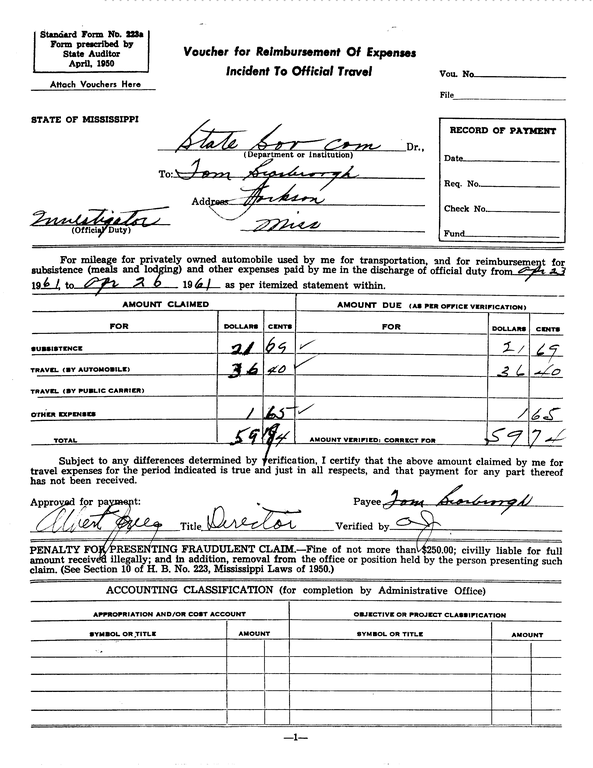 Standard Form No. 223a
Form prescribed by
State Auditor
April, 1950
Attach Vouchers Here
Voucher for Reimbursement Of Expenses
Incident To Official Travel
Vou. No.
File
STATE OF MISSISSIPPI
RECORD OF PAYMENT
Date
Req. No.
Check No.
Fund
State Sov com Dr.,
(Department or institution)
To: Tom Scarbrough
Address Jackson
Miss
Investigator
(Official Duty)
For mileage for privately owned automobile used by me for transportation, and for reimbursement for
subsistence (meals and lodging) and other expenses paid by me in the discharge of official duty from Apr 23
1961, to Apr 26 1961 as per itemized statement within.
AMOUNT CLAIMED AMOUNT DUE (AS PER OFFICE VERIFICATION)
FOR DOLLARS CENTS FOR DOLLARS CENTS
SUBSISTENCE 21 69 ✓ 21 69
TRAVEL (BY AUTOMOBILE) 36 40 ✓ 36 40
TRAVEL (BY PUBLIC CARRIER)
OTHER EXPENSES 1 65 ✓ 1 65
TOTAL 59 74 AMOUNT VERIFIED: CORRECT FOR 59 74
Subject to any differences determined by verification, I certify that the above amount claimed by me for
travel expenses for the period indicated is true and just in all respects, and that payment for any part thereof
has not been received.
Approved for payment: Payee Tom Scarbrough
Albert Title Director Verified by
PENALTY FOR PRESENTING FRAUDULENT CLAIM.—Fine of not more than $250.00; civilly liable for full
amount received illegally; and in addition, removal from the office or position held by the person presenting such
claim. (See Section 10 of H. B. No. 223, Mississippi Laws of 1950.)
ACCOUNTING CLASSIFICATION (for completion by Administrative Office)
APPROPRIATION AND/OR COST ACCOUNT OBJECTIVE OR PROJECT CLASSIFICATION
SYMBOL OR TITLE AMOUNT SYMBOL OR TITLE AMOUNT
—1—